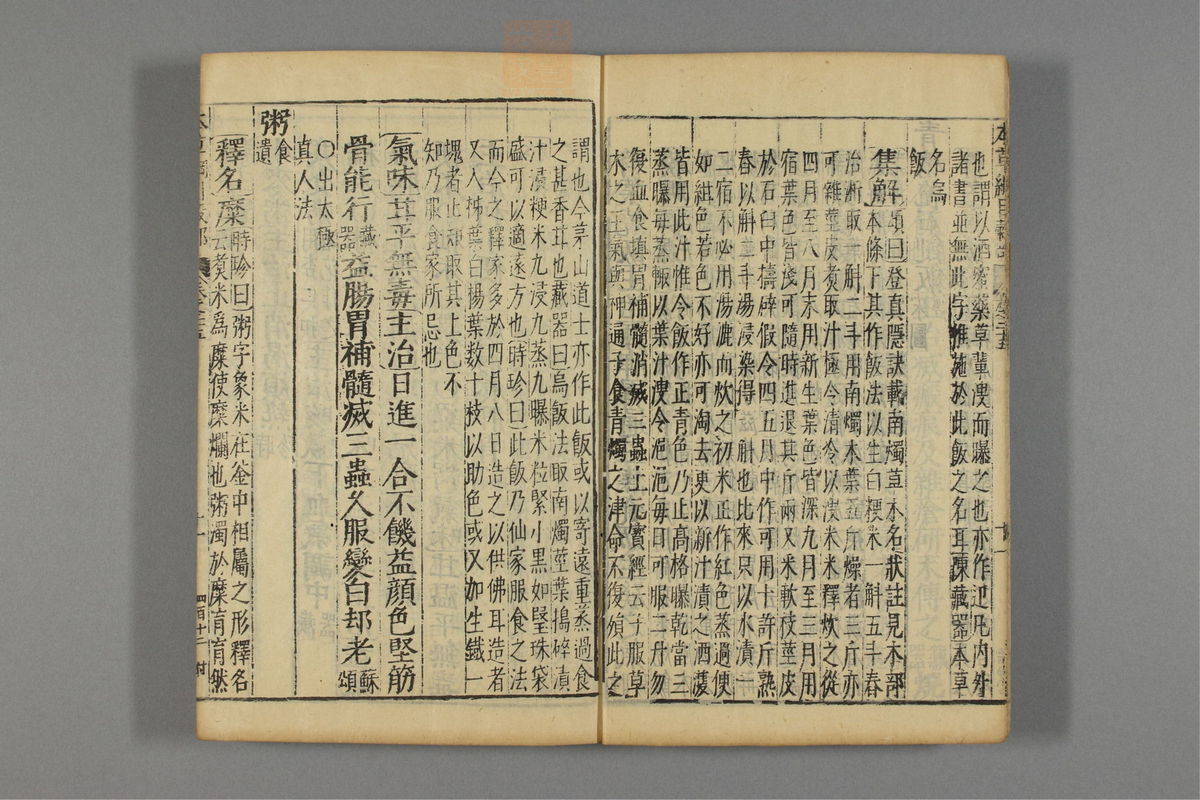 也謂以酒蜜藥草輩溲而曝之也亦作𩚳凡内外
諸書並無此字惟施於此飯之名耳陳藏器本草
名烏
飯
集解頌曰登真隱訣載南燭草木名狀註見木部
本條下其作飯法以生白粳米一斛五斗春
治淅取一斛二斗用南燭木葉五斤燥者三斤亦
可雜莖皮煮取汁極令清冷以溲米米釋炊之從
四月至八月末用新生葉色皆深九月至三月用
宿葉色皆淺可隨時進退其斤兩又米軟枝莖皮
於石臼中擣碎假令四五月中作可用十許斤熟
春以斛二斗湯浸染得一斛也比來只以水漬一
二宿不必用湯漉而炊之初米正作紅色蒸過便
如紺色若色不好亦可淘去更以新汁漬之酒濩
皆用此汁惟令飯作正青色乃止高格曝乾當三
蒸曝每蒸輒以葉汁溲令浥浥每日可服二升勿
復血食填胃補髓消滅三蟲上元寶經云子服草
木之王氣與神通子食青燭之津命不復殞此之
謂也今茅山道士亦作此飯或以寄遠重蒸過食
之甚香甘也藏器曰烏飯法取南燭莖葉搗碎漬
汁漬粳米九浸九蒸九曝米粒緊小黑如堅珠袋
盛可以適遠方也時珍曰此飯乃仙家服食之法
而今之釋家多於四月八日造之以供佛耳造者
又入柹葉白楊葉数十枝以助色或又加生鐵一
塊者止知取其上色不
知乃服食家所忌也
氣味甘平無毒主治日進一合不饑益顔色堅筋
骨能行藏器益腸胃補髓滅三蟲久服變白却老蘇頌
〇出太極
真人法
粥食
遺
釋名糜時珍曰粥字象米在釜中相屬之形釋名
云煮米為糜使糜爛也粥濁於糜育育然